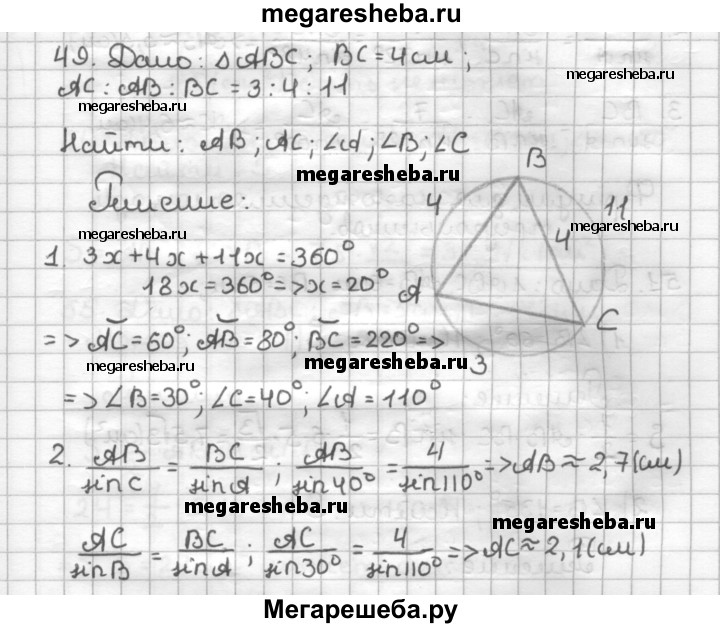 megaresheba.ru
49. Дано: △ABC; BC=4см;
AC:AB:BC=3:4:11
megaresheba.ru
megaresheba.ru
Найти: AB; AC; ∠A; ∠B; ∠C
megaresheba.ru
Решение:
B
4
11
megaresheba.ru
4
A
C
3
1. 3x+4x+11x=360°
18x=360°=>x=20°
=> ᴗAC=60°; ᴗAB=80°; ᴗBC=220°=>
megaresheba.ru
megaresheba.ru
=>∠B=30°; ∠C=40°; ∠A=110°
2. AB/sinC = BC/sinA; AB/sin40° = 4/sin110° =>AB≈2,7(см)
megaresheba.ru
megaresheba.ru
AC/sinB = BC/sinA; AC/sin30° = 4/sin110° =>AC≈2,1(см)
Мегарешеба.ру